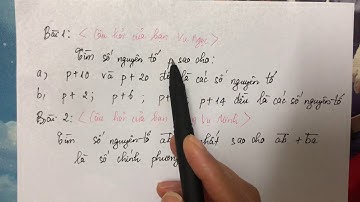 Bài 1: < Câu hỏi của bạn Vu Ngọc >
Tìm số nguyên tố p sao cho:
a, p+10 và p+20 là các số nguyên tố
b, p+2; p+6; p+14 đều là các số nguyên tố
Bài 2: < Câu hỏi của Vu Ninh >
Tìm số nguyên tố ab nhất sao cho ab + ba
là số chính phương